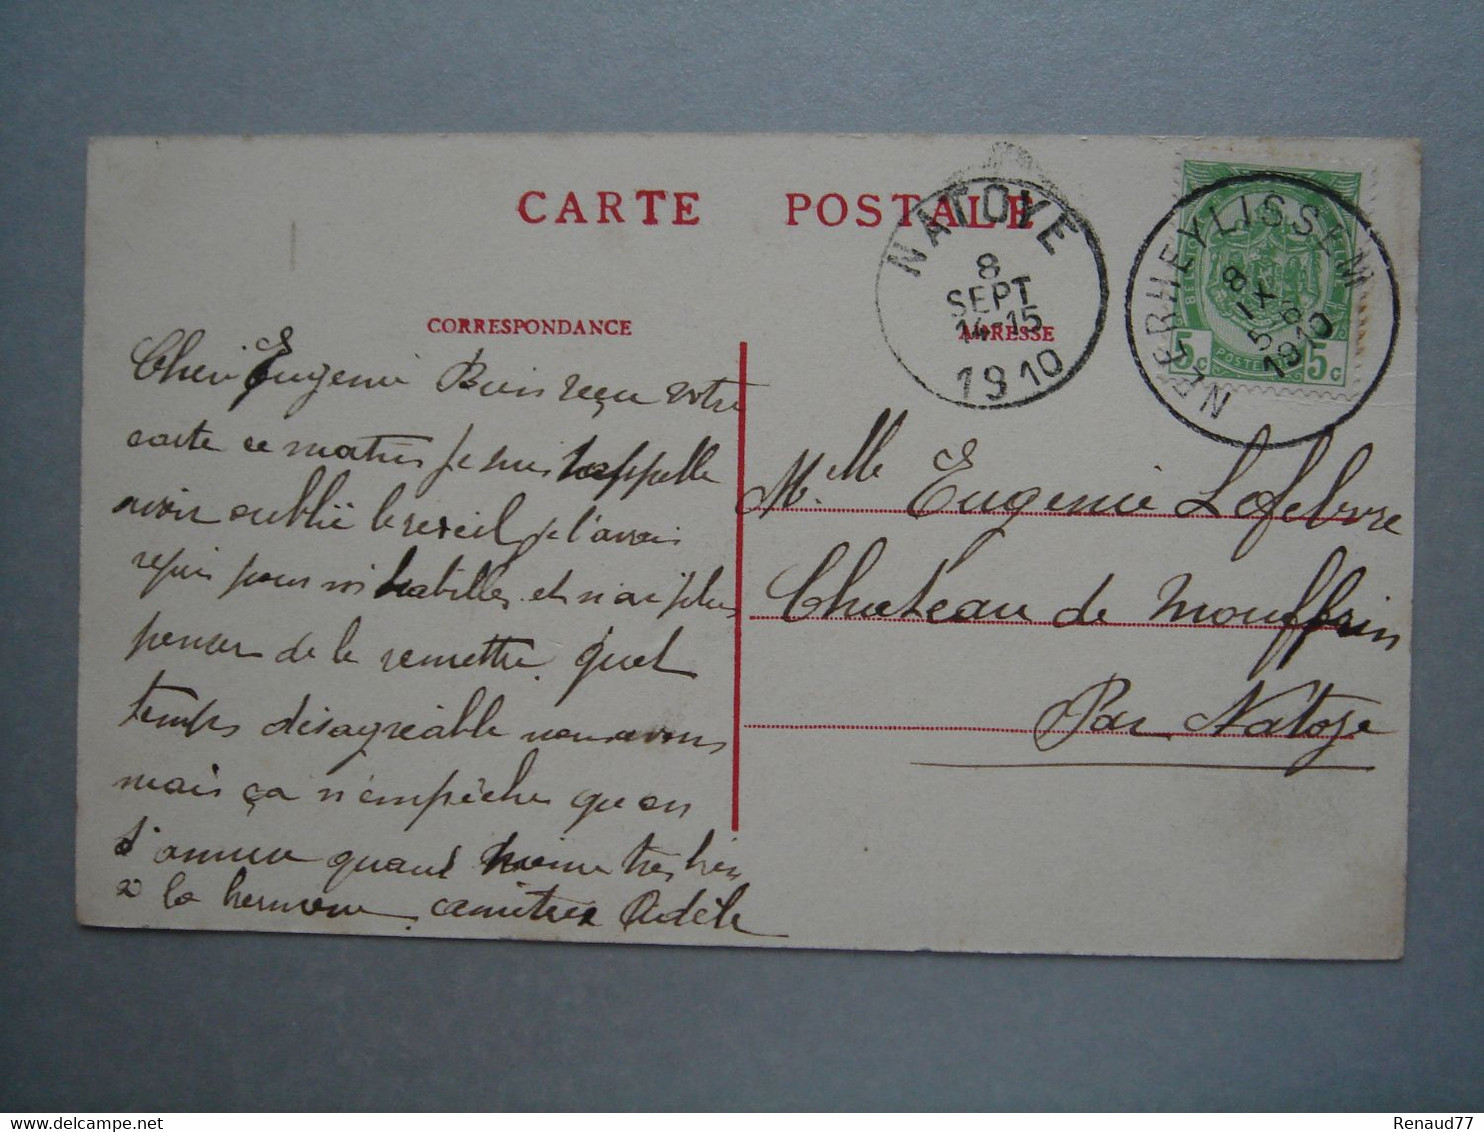 CARTE POSTALE
CORRESPONDANCE
ADRESSE
NATOYE
8
SEPT
14-15
1910
NEERHEYLISSEM
8
IX
5-6
1910
5c POSTES 5c
Cher Eugenie Bien reçu votre
carte ce matin je me rappelle
avoir oublié le reveil je l'avais
repris pour m'habiller et n'ai plus
penser de le remettre. Quel
temps désagréable nous avons
mais ça n'empêche qu'on
s'amuse quand même très bien
a la . amitiés Adèle
Melle Eugenie Lefebvre
Chateau de Mouffrin
Par Natoye
Renaud77